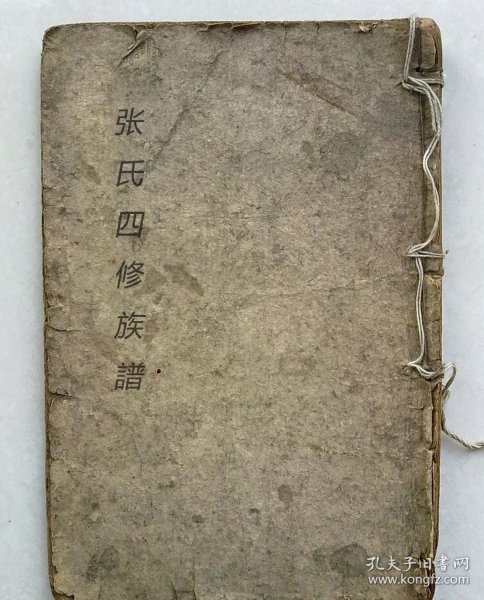 张氏四修族譜
孔夫子旧书网
www.kongfz.com